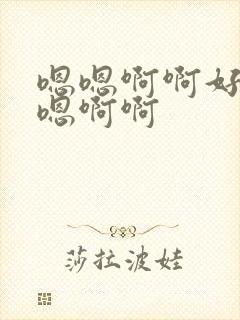 嗯嗯啊啊好
嗯啊啊
莎拉波娃